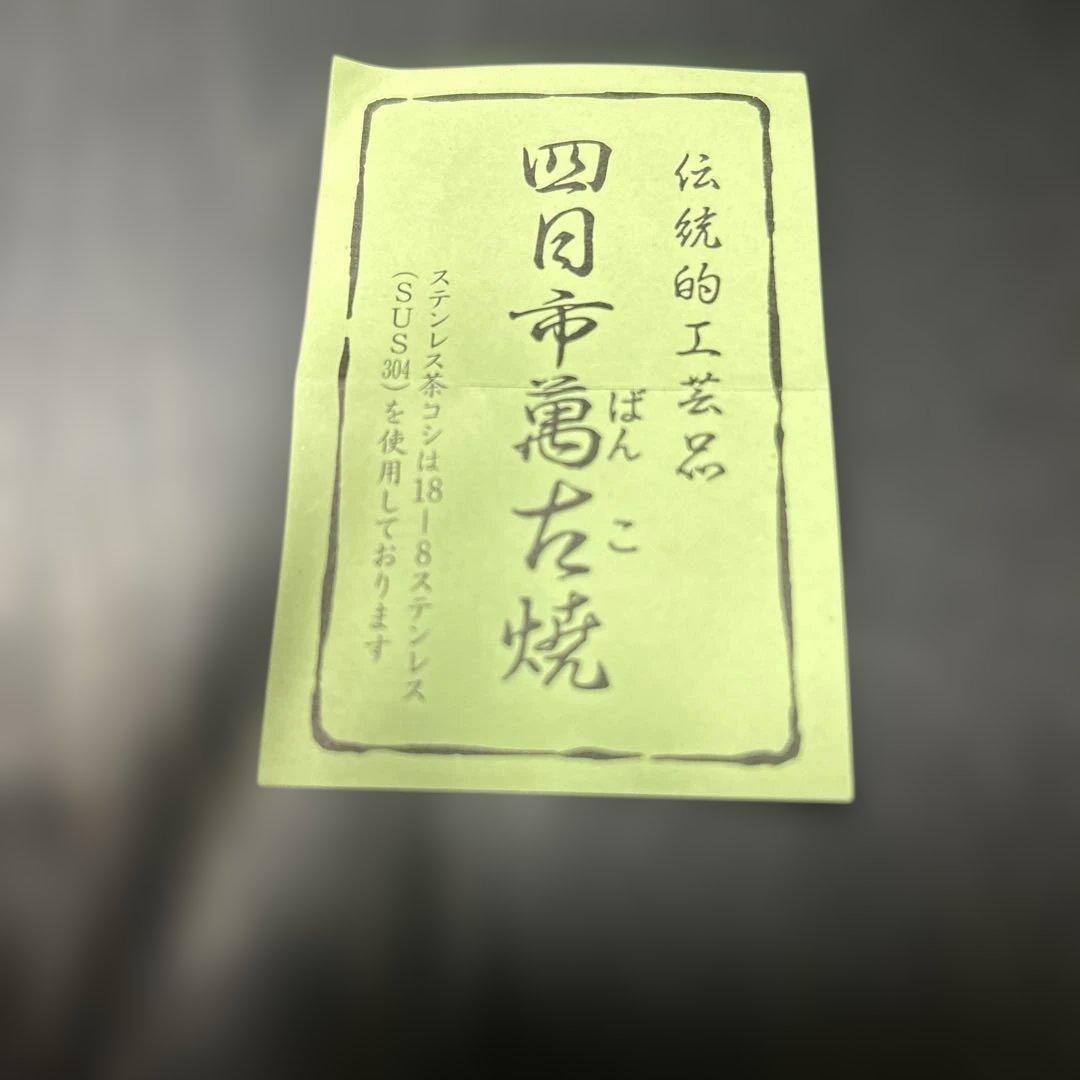 伝統的工芸品
四日市萬古焼
ばんこ
ステンレス茶コシは18－8ステンレス
（SUS304）を使用しております